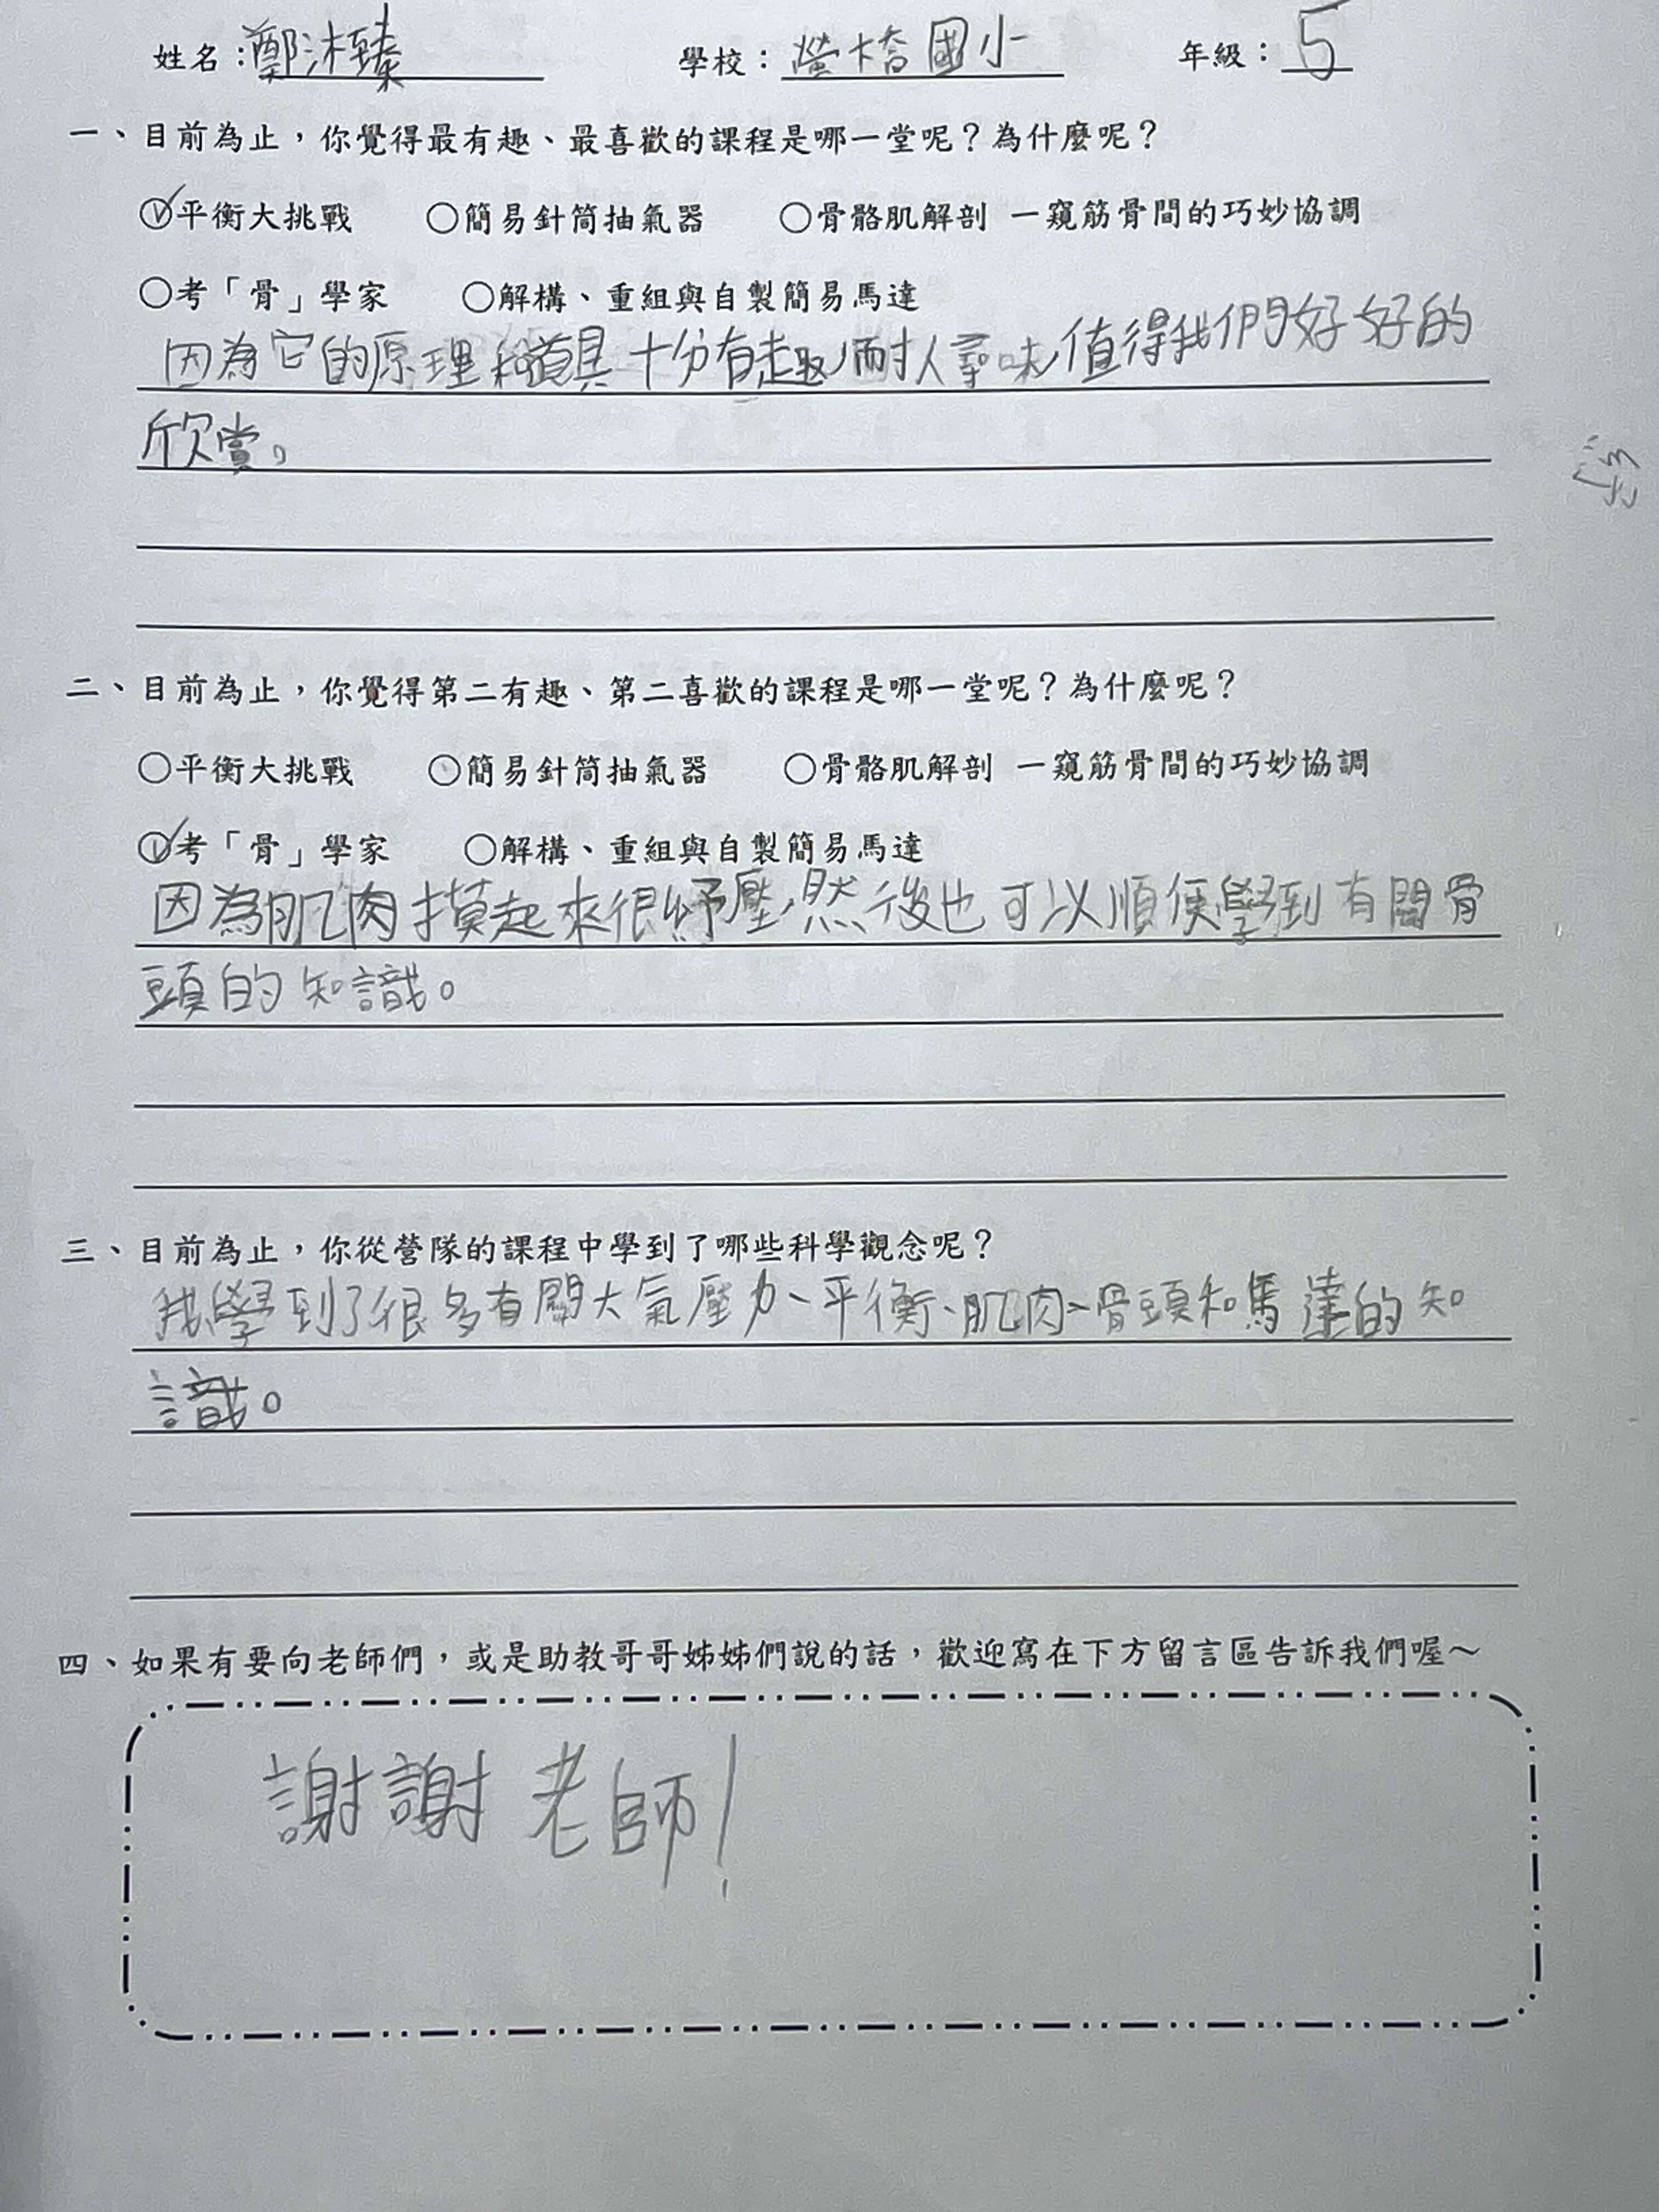 姓名：鄭沐臻 學校：螢橋國小 年級：5
一、目前為止，你覺得最有趣、最喜歡的課程是哪一堂呢？為什麼呢？
✓平衡大挑戰 ○簡易針筒抽氣器 ○骨骼肌解剖 一窺筋骨間的巧妙協調
○考「骨」學家 ○解構、重組與自製簡易馬達
因為它的原理和道具十分有趣，耐人尋味，值得我們好好的
欣賞。
二、目前為止，你覺得第二有趣、第二喜歡的課程是哪一堂呢？為什麼呢？
○平衡大挑戰 ○簡易針筒抽氣器 ○骨骼肌解剖 一窺筋骨間的巧妙協調
✓考「骨」學家 ○解構、重組與自製簡易馬達
因為肌肉摸起來很紓壓，然後也可以順便學到有關骨
頭的知識。
三、目前為止，你從營隊的課程中學到了哪些科學觀念呢？
我學到了很多有關大氣壓力、平衡、肌肉、骨頭和馬達的知
識。
四、如果有要向老師們，或是助教哥哥姊姊們說的話，歡迎寫在下方留言區告訴我們喔～
謝謝老師！